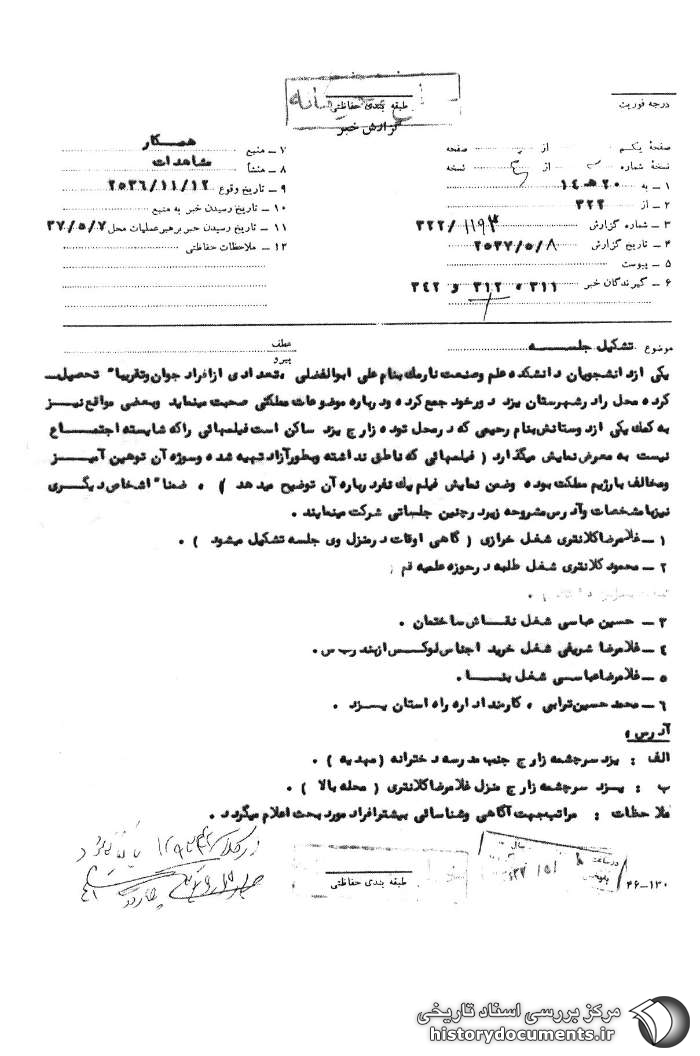 درجه فوریت
طبقه بندی حفاظتی
گزارش خبر
صفحهٔ یکم از صفحه
نسخهٔ شماره از نسخه
۱ ـ به ۲۰ هـ ۱۴
۲ ـ از ۳۲۲
۳ ـ شماره گزارش ۳۲۲/۱۱۹۳
۴ ـ تاریخ گزارش ۲۵۳۷/۵/۸
۵ ـ پیوست
۶ ـ گیرندگان خبر ۳۱۱ ، ۳۱۲ و ۳۴۲
۷ ـ منبع همکار
۸ ـ منشأ مشاهدات
۹ ـ تاریخ وقوع ۲۵۳۶/۱۱/۱۲
۱۰ ـ تاریخ رسیدن خبر به منبع
۱۱ ـ تاریخ رسیدن خبر برهبر عملیات محل ۳۷/۵/۷
۱۲ ـ ملاحظات حفاظتی
موضوع تشکیل جلسه
عطف
پیرو
یکی از دانشجویان دانشکده علم وصنعت نارمک بنام علی ابوالفضلی ، تعدادی ازافراد جوان وتقریبا" تحصیل
کرده محل را در شهرستان یزد دورخود جمع کرده ودرباره موضوعات مملکتی صحبت مینماید وبعضی مواقع نیز
به کمک یکی ازدوستانش بنام رحیمی که درمحل توده زارچ یزد ساکن است فیلمهائی راکه شایسته اجتماع
نیست به معرض نمایش میگذارد ( فیلمهائی که ناطق نداشته وبطورآزاد تهیه شده وسوژه آن توهین آمیز
ومخالف بارژیم مملکت بوده وضمن نمایش فیلم یک نفر درباره آن توضیح میدهد ) ، ضمنا" اشخاص دیگری
نیز با مشخصات وآدرس مشروحه زیر درچنین جلساتی شرکت مینمایند .
۱ ـ غلامرضا کلانتری شغل خرازی ( گاهی اوقات درمنزل وی جلسه تشکیل میشود ) .
۲ ـ محمود کلانتری شغل طلبه درحوزه علمیه قم
۳ ـ حسین عباسی شغل نقاش ساختمان .
۴ ـ غلامرضا شریفی شغل خرید اجناس لوکس ازبندر ب س .
۵ ـ غلامرضا عباسی شغل بنا .
۶ ـ محمد حسین ترابی ، کارمند اداره راه استان یزد .
آدرس :
الف : یزد سرچشمه زارچ جنب مدرسه دخترانه ( مهدیه ) .
ب : یزد سرچشمه زارچ منزل غلامرضا کلانتری ( محله بالا ) .
ملاحظات : مراتب جهت آگاهی وشناسائی بیشتر افراد مورد بحث اعلام میگردد .
طبقه بندی حفاظتی
۴۶ـ۱۳۰
مرکز بررسی اسناد تاریخی
historydocuments.ir